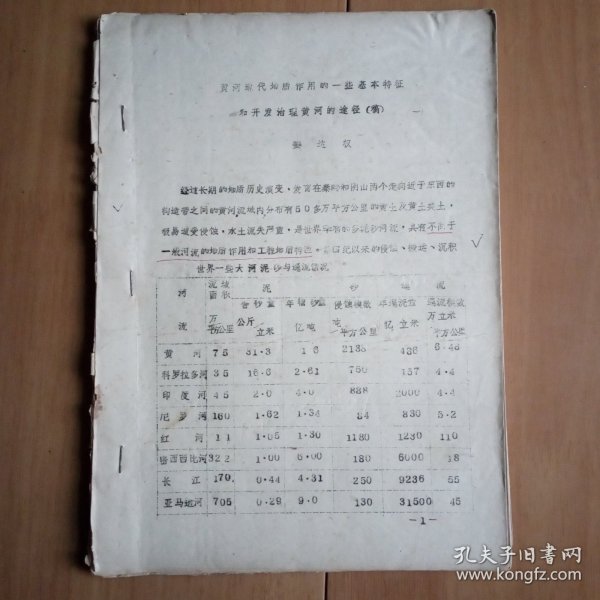 黄河现代地质作用的一些基本特征
和开发治理黄河的途径(稿)
经过长期的地质历史演变,发育在秦岭和阴山两个走向近于东西的
构造带之间的黄河流域内分布有50多万平方公里的黄土及黄土类土,
极易遭受侵蚀,水土流失严重,是世界罕有的多泥沙河流,具有不同于
一般河流的地质作用和工程地质特征。第四纪以来的侵蚀、搬运、沉积
世界一些大河泥砂与逕流情况
河流 流域面积 万平方公里 泥砂 逕流
含砂量 公斤/立米 年输砂量 亿吨 侵蚀模数 吨/平方公里 年逕流量 亿立米 逕流模数 万立米/平方公里
黄河 75 31.3 16 2133 486 6.48
科罗拉多河 35 16.6 2.61 750 157 4.4
印度河 45 2.0 4.0 888 2000 4.4
尼罗河 160 1.62 1.34 84 830 5.2
红河 11 1.05 1.30 1180 1230 110
密西西比河 322 1.00 6.00 180 6000 18
长江 170 0.44 4.31 250 9236 55
亚马逊河 705 0.29 9.0 130 31500 45
-1-
孔夫子旧书网
www.kongfz.com